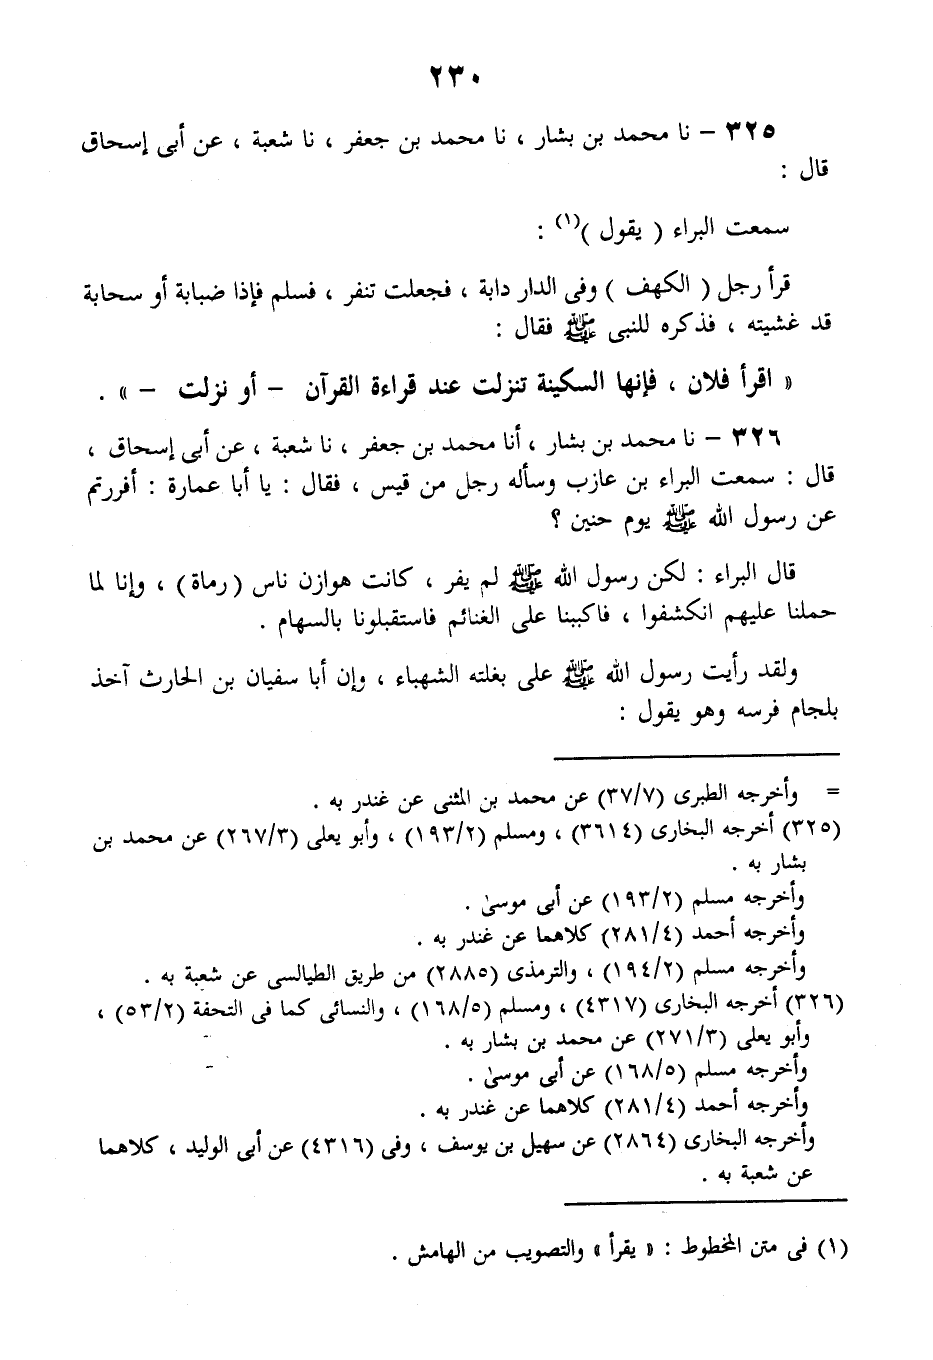 ٢٣٠
٣٢٥ – نا محمد بن بشار ، نا محمد بن جعفر ، نا شعبة ، عن أبى إسحاق
قال :
سمعت البراء ( يقول )(١) :
قرأ رجل ( الكهف ) وفى الدار دابة ، فجعلت تنفر ، فسلم فإذا ضبابة أو سحابة
قد غشيته ، فذكره للنبى ﷺ فقال :
« اقرأ فلان ، فإنها السكينة تنزلت عند قراءة القرآن – أو نزلت – » .
٣٢٦ – نا محمد بن بشار ، أنا محمد بن جعفر ، نا شعبة ، عن أبى إسحاق ،
قال : سمعت البراء بن عازب وسأله رجل من قيس ، فقال : يا أبا عمارة : أفررتم
عن رسول الله ﷺ يوم حنين ؟
قال البراء : لكن رسول الله ﷺ لم يفر ، كانت هوازن ناس (رماة) ، وإنا لما
حملنا عليهم انكشفوا ، فاكببنا على الغنائم فاستقبلونا بالسهام .
ولقد رأيت رسول الله ﷺ على بغلته الشهباء ، وإن أبا سفيان بن الحارث آخذ
بلجام فرسه وهو يقول :
= وأخرجه الطبرى (٣٧/٧) عن محمد بن المثنى عن غندر به .
(٣٢٥) أخرجه البخارى (٣٦١٤) ، ومسلم (١٩٣/٢) ، وأبو يعلى (٢٦٧/٣) عن محمد بن
بشار به .
وأخرجه مسلم (١٩٣/٢) عن أبى موسىٰ .
وأخرجه أحمد (٢٨١/٤) كلاهما عن غندر به .
وأخرجه مسلم (١٩٤/٢) ، والترمذى (٢٨٨٥) من طريق الطيالسى عن شعبة به .
(٣٢٦) أخرجه البخارى (٤٣١٧) ، ومسلم (١٦٨/٥) ، والنسائى كما فى التحفة (٥٣/٢) ،
وأبو يعلى (٢٧١/٣) عن محمد بن بشار به .
وأخرجه مسلم (١٦٨/٥) عن أبى موسىٰ .
وأخرجه أحمد (٢٨١/٤) كلاهما عن غندر به .
وأخرجه البخارى (٢٨٦٤) عن سهيل بن يوسف ، وفى (٤٣١٦) عن أبى الوليد ، كلاهما
عن شعبة به .
(١) فى متن المخطوط : « يقرأ » والتصويب من الهامش .